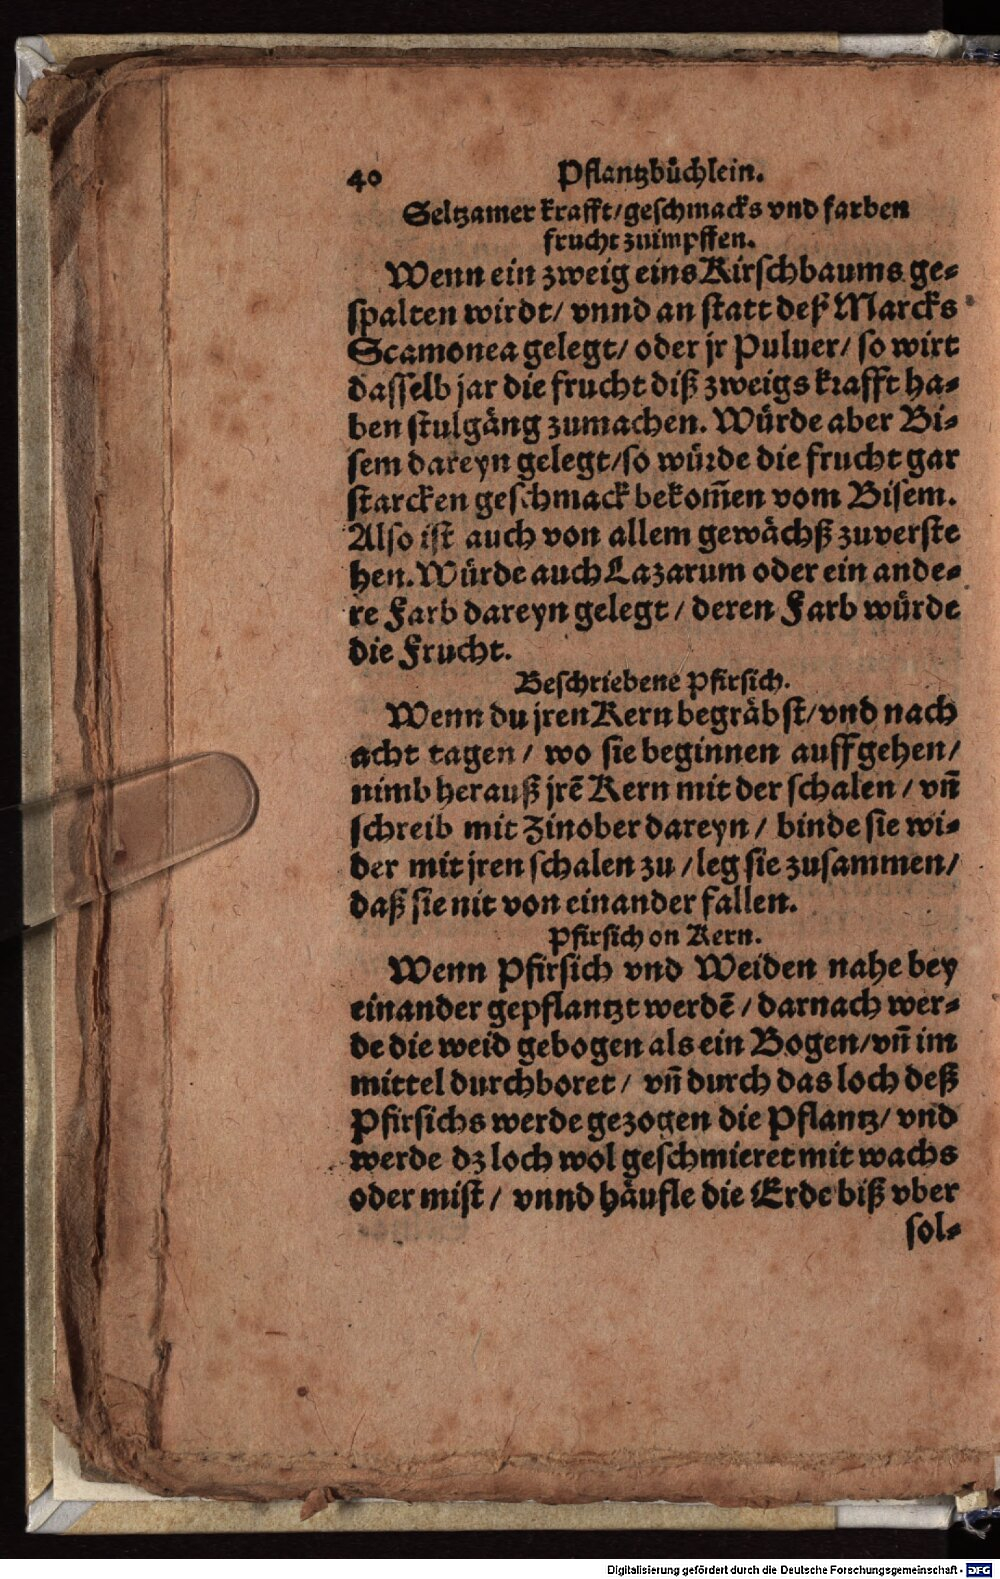 40 Pflantzbüchlein.
Seltzamer krafft/geschmacks vnd farben
frucht zuimpffen.
Wenn ein zweig eins Kirschbaums ge-
spalten wirdt/ vnnd an statt deß Marcks
Scamonea gelegt/ oder jr Puluer/ so wirt
dasselb jar die frucht diß zweigs krafft ha-
ben stulgäng zumachen. Würde aber Bi-
sem dareyn gelegt/so würde die frucht gar
starcken geschmack bekom̄en vom Bisem.
Also ist auch von allem gewächß zuverste
hen. Würde auch Lazarum oder ein ande-
re Farb dareyn gelegt/ deren Farb würde
die Frucht.
Beschriebene Pfirsich.
Wenn du jren Kern begräbst/vnd nach
acht tagen/ wo sie beginnen auffgehen/
nimb herauß jrē Kern mit der schalen/ vn̄
schreib mit Zinober dareyn/ binde sie wi-
der mit jren schalen zu/leg sie zusammen/
daß sie nit von einander fallen.
Pfirsich on Kern.
Wenn Pfirsich vnd Weiden nahe bey
einander gepflantzt werdē/ darnach wer-
de die weid gebogen als ein Bogen/vn̄ im
mittel durchboret/ vn̄ durch das loch deß
Pfirsichs werde gezogen die Pflantz/ vnd
werde dz loch wol geschmieret mit wachs
oder mist/ vnnd häufle die Erde biß vber
sol-
Digitalisierung gefördert durch die Deutsche Forschungsgemeinschaft - DFG